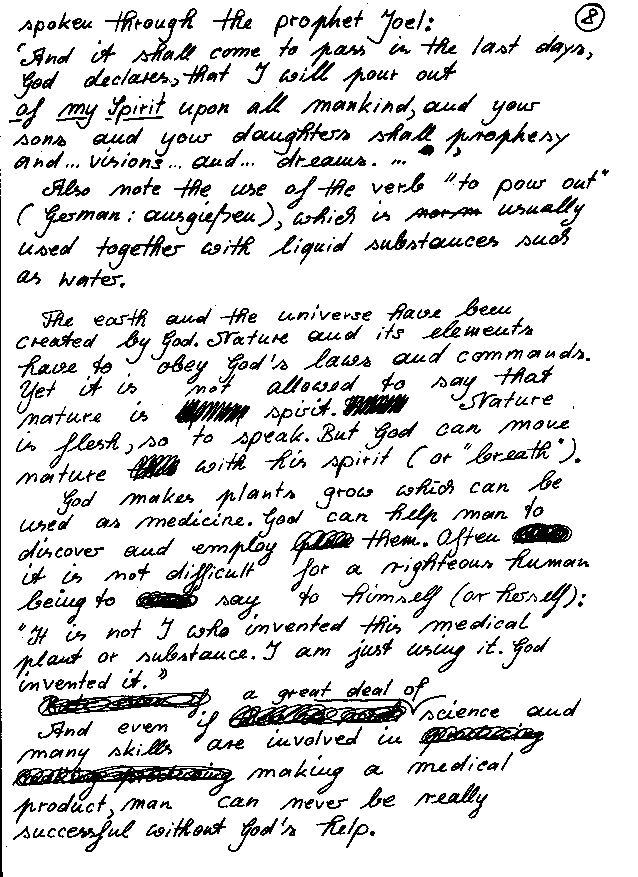 8
spoken through the prophet Joel:
'And it shall come to pass in the last days,
God declares, that I will pour out
of my Spirit upon all mankind, and your
sons and your daughters shall prophesy
and... visions... and... dreams. ...
Also note the use of the verb "to pour out"
(German: ausgießen), which is usually
used together with liquid substances such
as water.
The earth and the universe have been
created by God. Nature and its elements
have to obey God's laws and commands.
Yet it is not allowed to say that
nature is spirit. Nature
is flesh, so to speak. But God can move
nature with his spirit (or "breath").
God makes plants grow which can be
used as medicine. God can help man to
discover and employ them. Often
it is not difficult for a righteous human
being to say to himself (or herself):
"It is not I who invented this medical
plant or substance. I am just using it. God
invented it."
a great deal of
And even if science and
many skills are involved in
making a medical
product, man can never be really
successful without God's help.